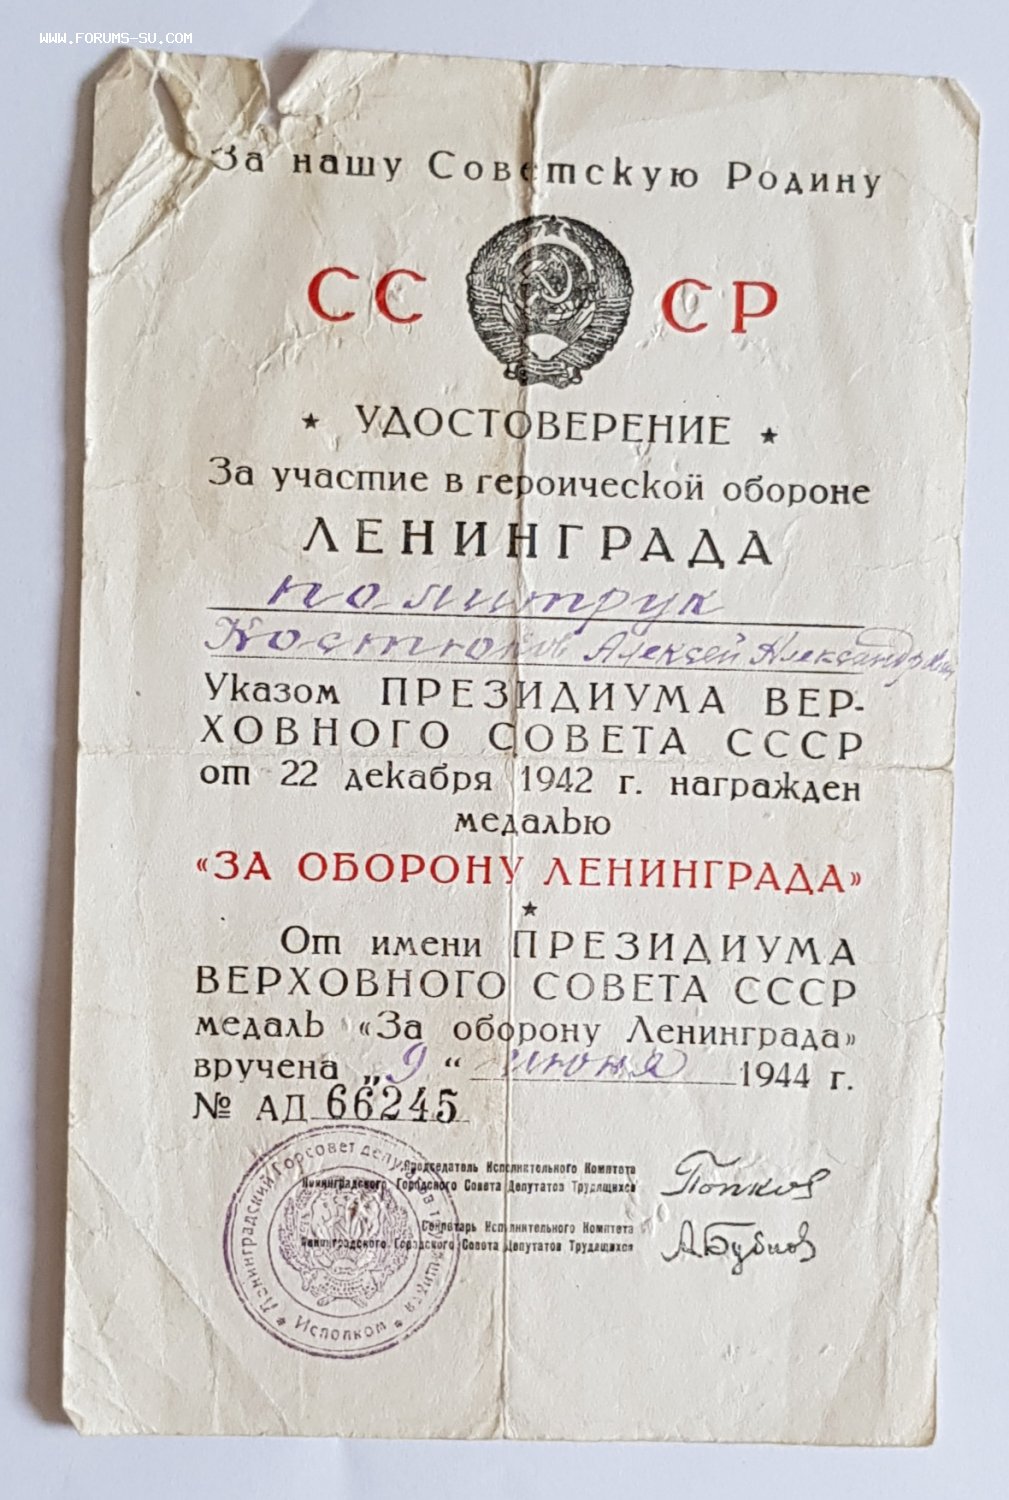 WWW.FORUMS-SU.COM
За нашу Советскую Родину
СС СР
★ УДОСТОВЕРЕНИЕ ★
За участие в героической обороне
ЛЕНИНГРАДА
политрук
Костюков Алексей Александрович
Указом ПРЕЗИДИУМА ВЕР-
ХОВНОГО СОВЕТА СССР
от 22 декабря 1942 г. награжден
медалью
«ЗА ОБОРОНУ ЛЕНИНГРАДА»
★
От имени ПРЕЗИДИУМА
ВЕРХОВНОГО СОВЕТА СССР
медаль «За оборону Ленинграда»
вручена „9“ июня 1944 г.
№ АД 66245
Председатель Исполнительного Комитета
Ленинградского Городского Совета Депутатов Трудящихся
Попков
Секретарь Исполнительного Комитета
Ленинградского Городского Совета Депутатов Трудящихся
А. Бубнов
Ленинградский Горсовет депутатов трудящихся
★ Исполком ★